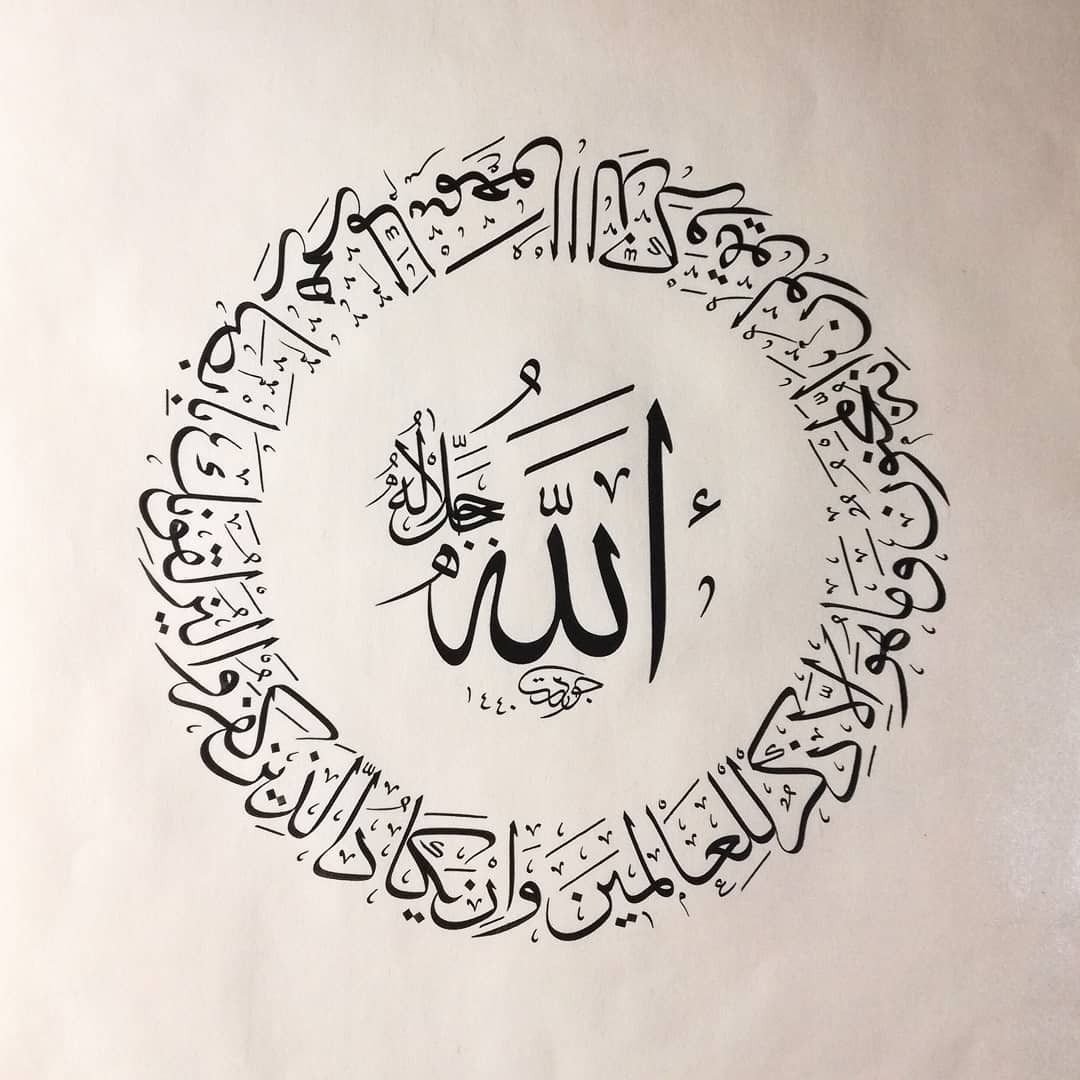 الله جل جلاله
جودت ١٤٤٠
وان يكاد الذين كفروا ليزلقونك بابصارهم لما سمعوا الذكر ويقولون انه لمجنون وما هو الا ذكر للعالمين